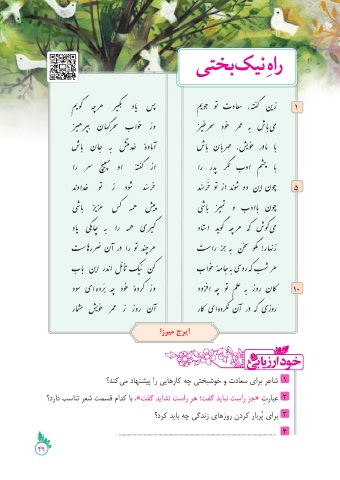 راهِ نیک‌بختی
۱ زین گفته، سعادت تو جویم پس یاد بگیر هرچه گویم
می‌باش به عمر خود سحرخیز وز خواب سحرگهان بپرهیز
با مادر خویش، مهربان باش آمادۀ خدمتش به جان باش
با چشم ادب نگر پدر را از گفتۀ او مپیچ سر را
۵ چون این دو شوند از تو خُرسَند خُرسَند شود ز تو خداوند
چون باادب و تمیز باشی پیش همه کس عزیز باشی
می‌کوش که هر چه گوید استاد گیری همه را به چابکی یاد
زنهار! مگو سخن به جز راست هرچند تو را در آن ضررهاست
هر شب که روی به جامۀ خواب کن نیک تأمّل اندر این باب
۱۰ کان روز به علم تو چه افزوده وز کردۀ خود چه بُرده‌ای سود
روزی که در آن نکرده‌ای کار آن روز ز عمر خویش مشمار
ایرج میرزا
خودارزیابی
۱ شاعر برای سعادت و خوشبختی چه کارهایی را پیشنهاد می کند؟
۲ عبارتِ «جز راست نباید گفت؛ هر راست نشاید گفت»، با کدام قسمت شعر تناسب دارد؟
۳ برای پُربار کردن روزهای زندگی چه باید کرد؟
۴ ........................................
۴۹